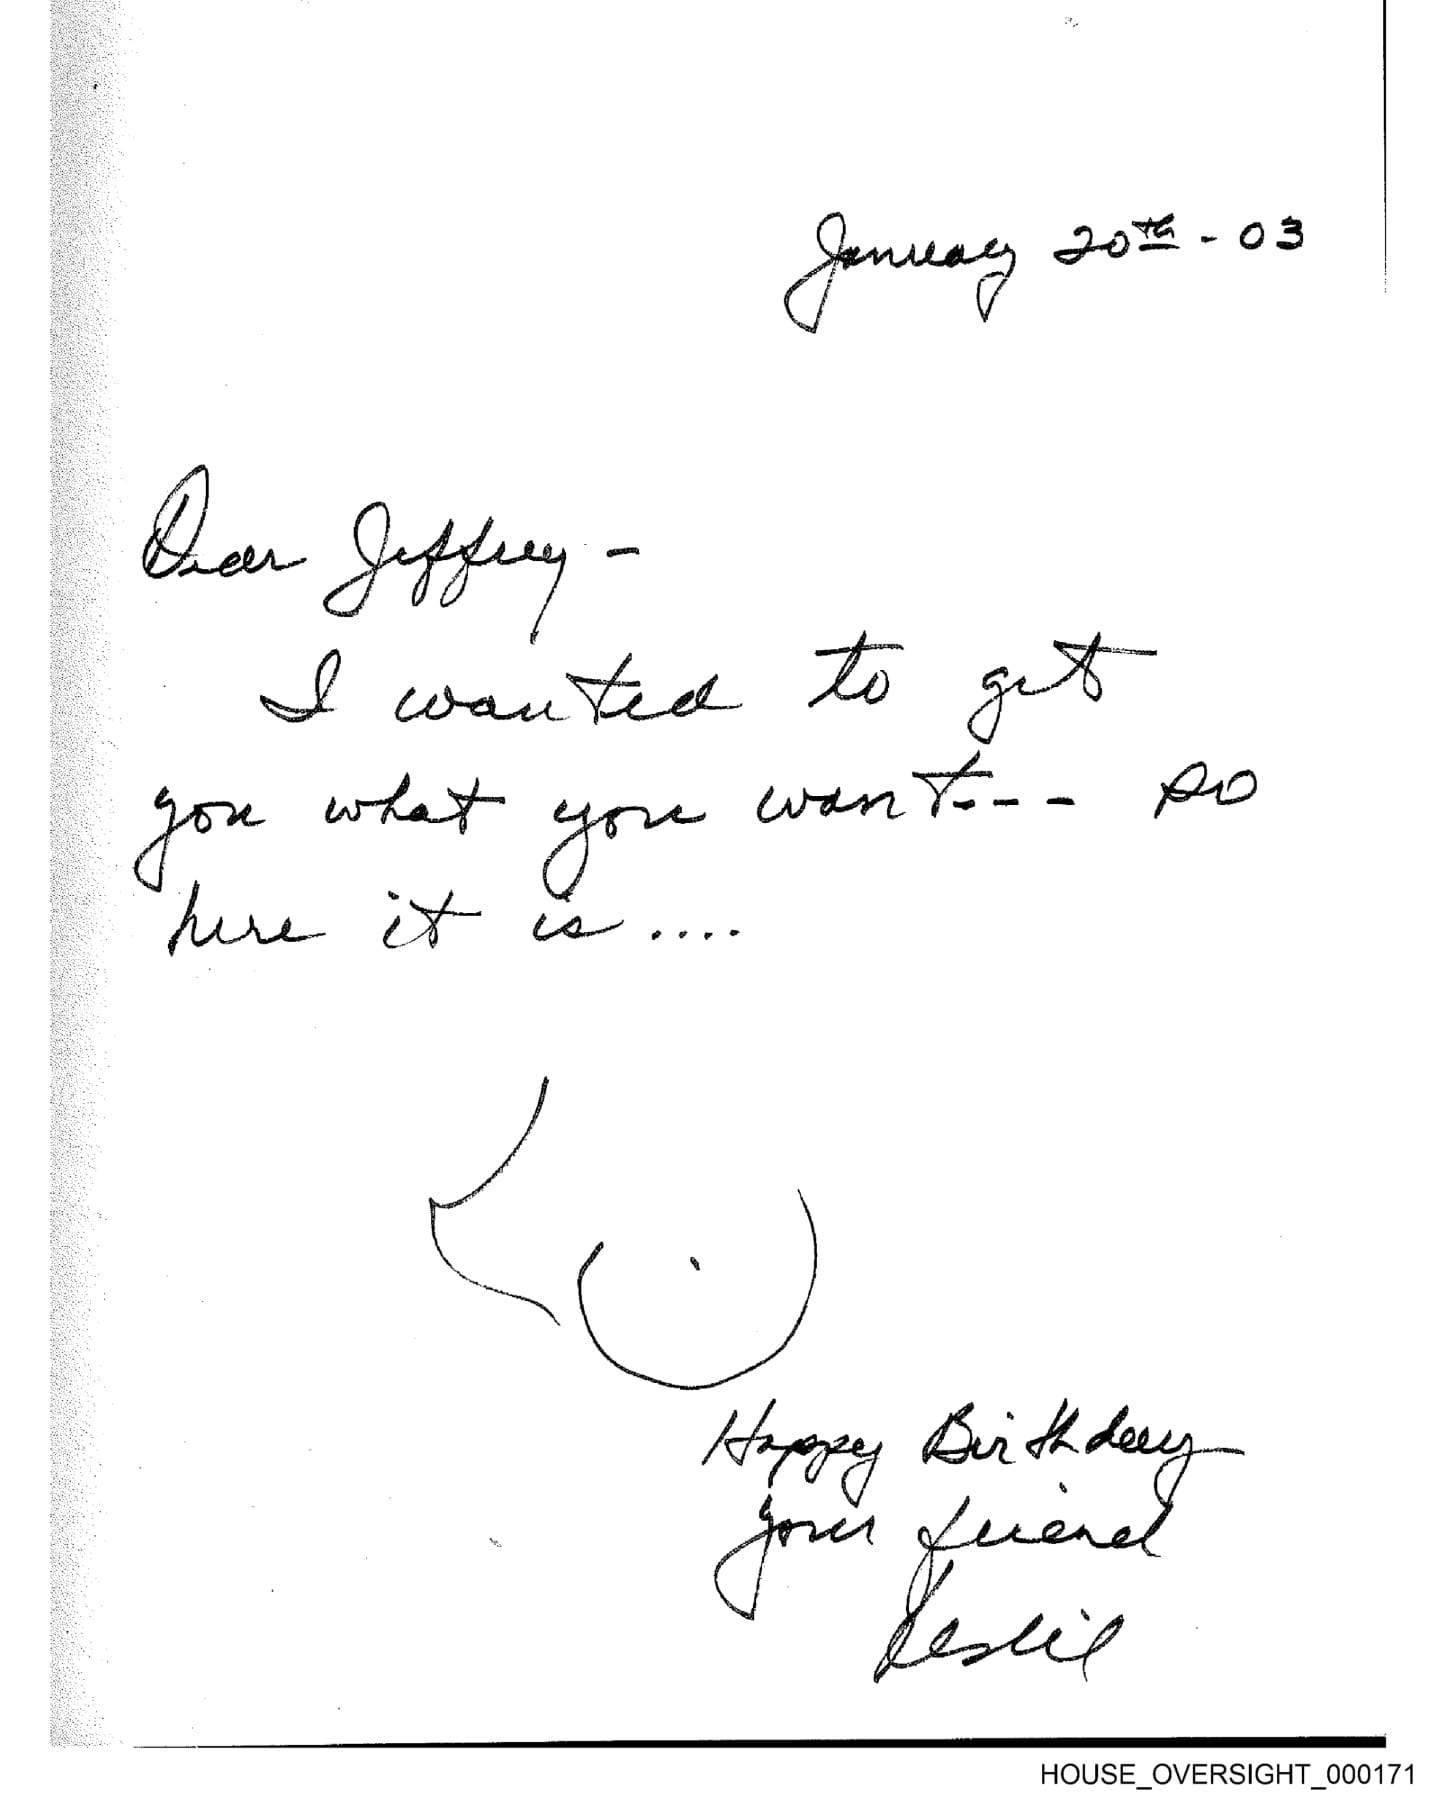 January 20th - 03
Dear Jeffrey -
I wanted to get
you what you want--- so
here it is ....
Happy Birthday
your friend
Leslie
HOUSE_OVERSIGHT_000171